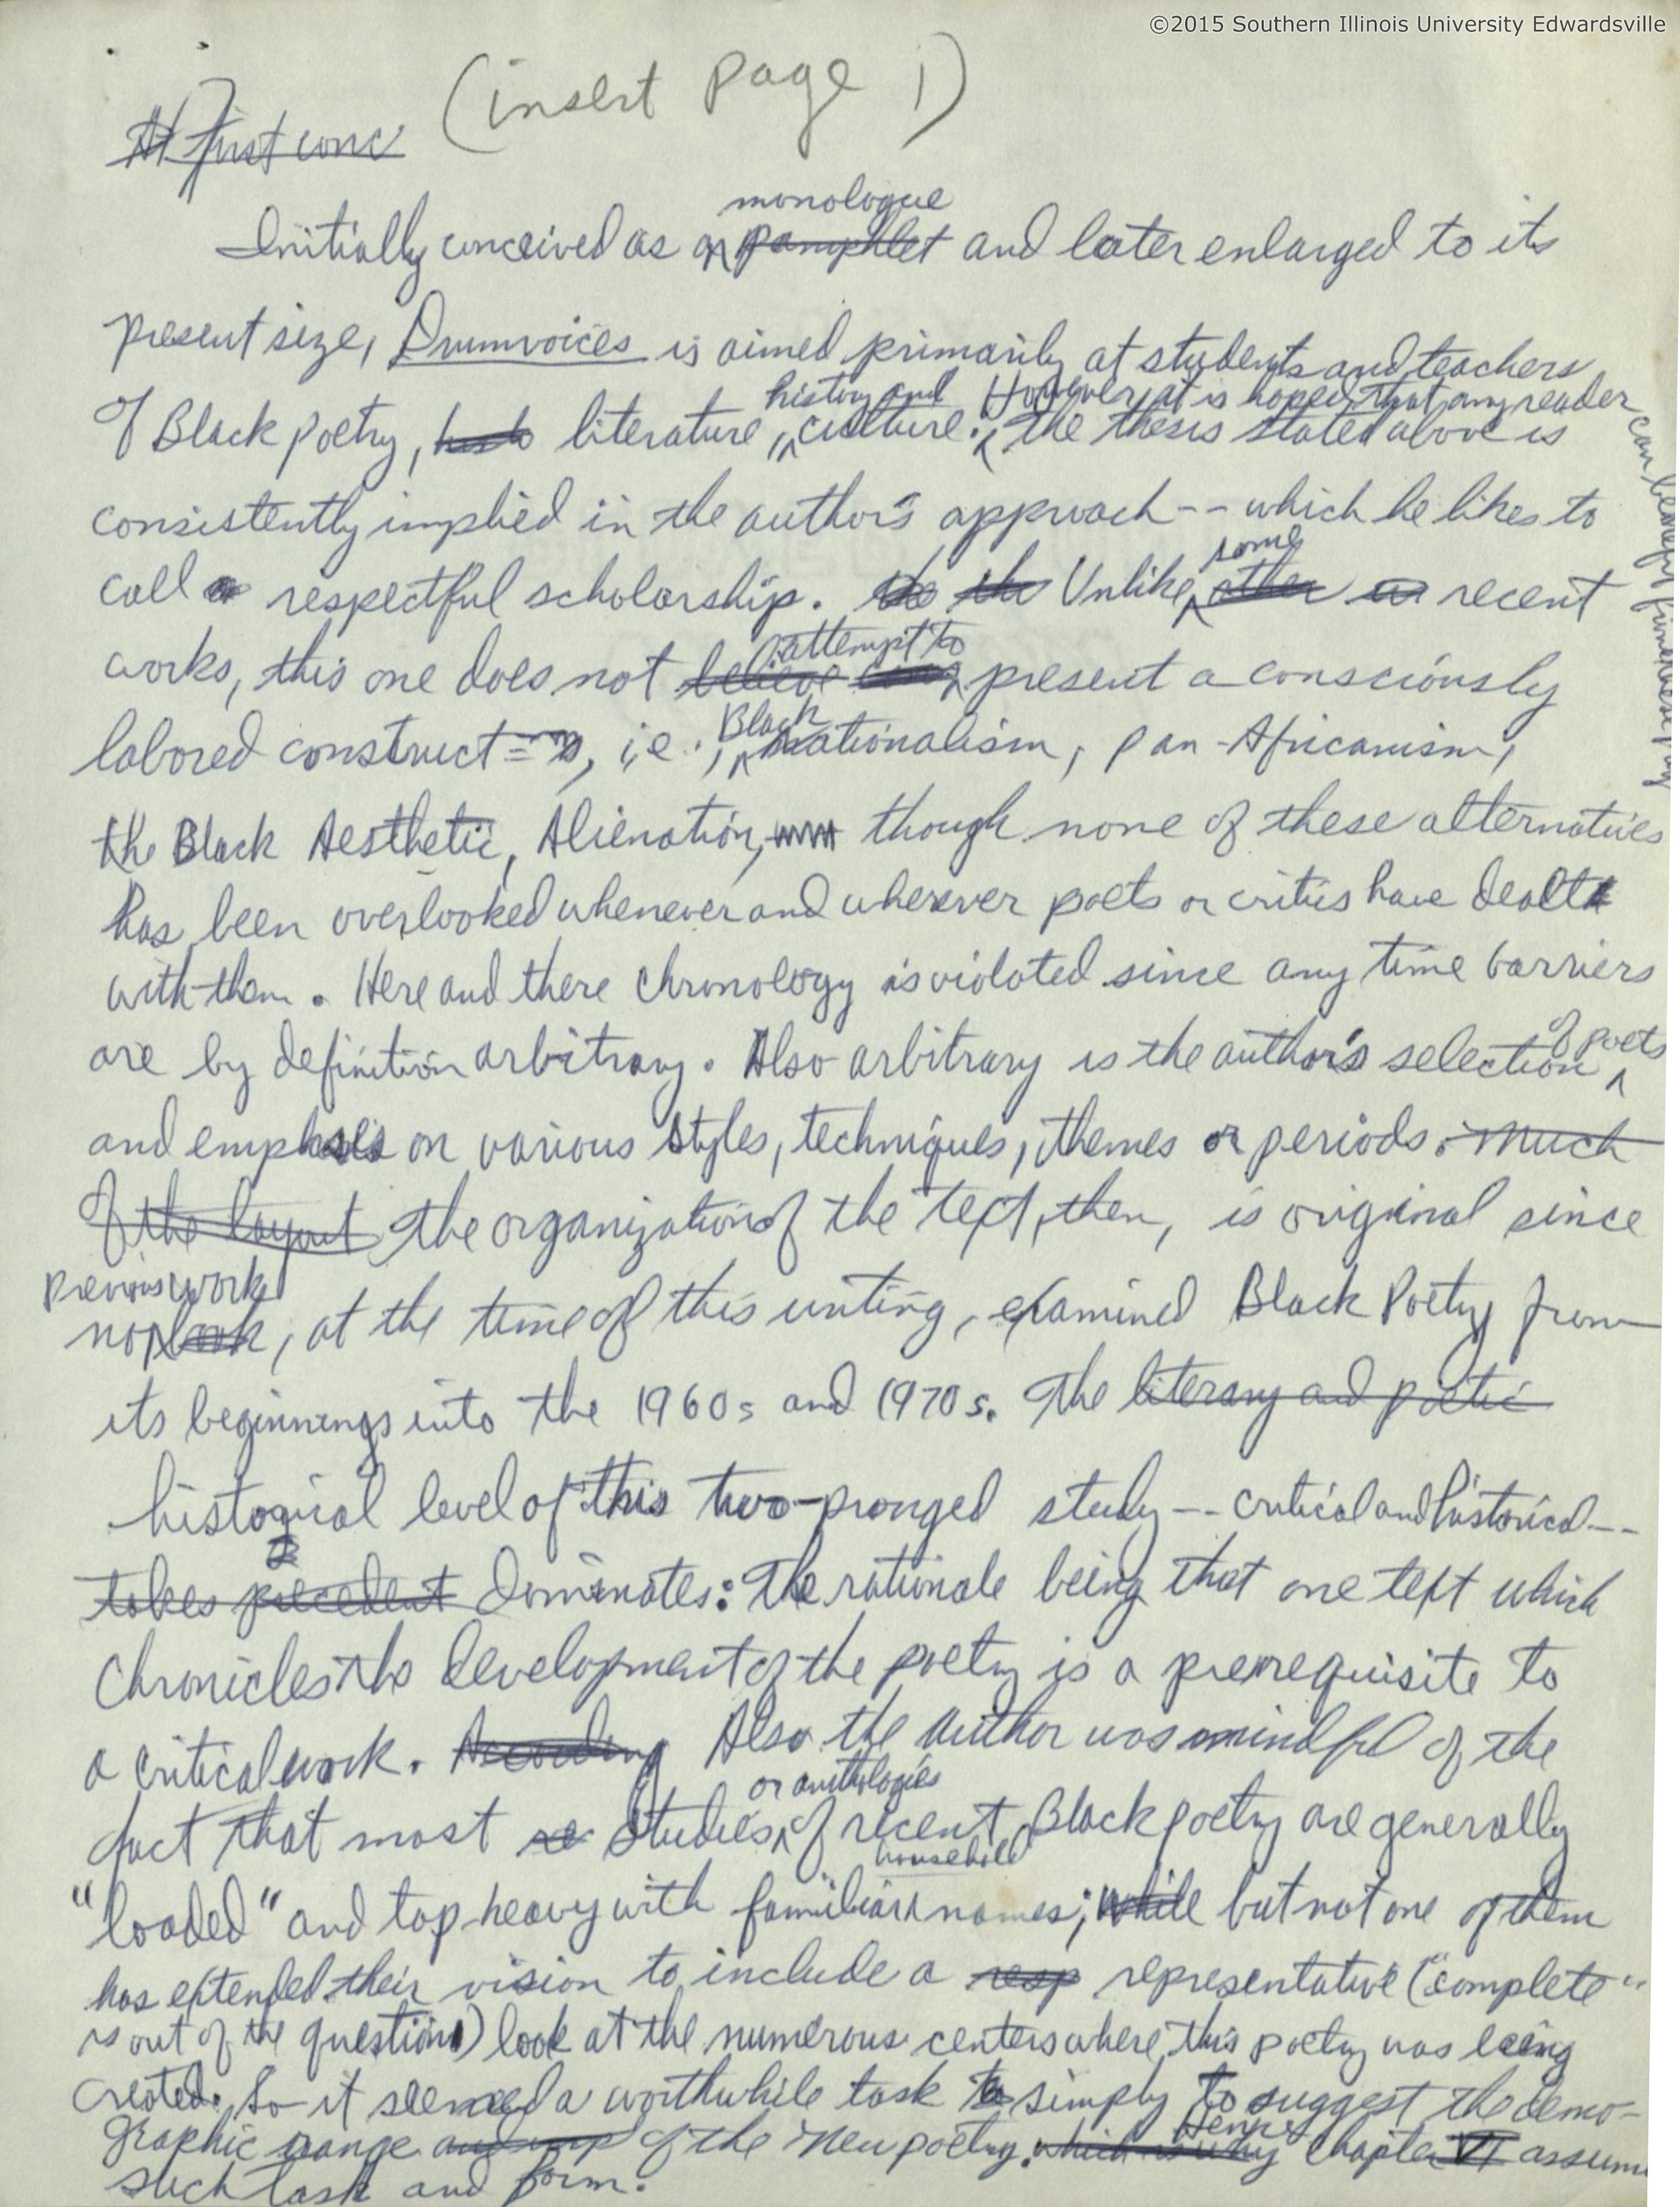 ©2015 Southern Illinois University Edwardsville
(insert page 1)
At first conc
monologue
Initially conceived as a pamphlet and later enlarged to its
present size, Drumvoices is aimed primarily at students and teachers
history and However, it is hoped that any reader can benefit from
of Black poetry, literature, culture. The thesis stated above is
consistently implied in the author's approach -- which he likes to
some
call a respectful scholarship. the Unlike other recent
attempt to
works, this one does not believe present a consciously
Black
labored construct, i.e., nationalism, pan-Africanism,
the Black Aesthetic, Alienation, though none of these alternatives
has been overlooked whenever and wherever poets or critics have dealt
with them. Here and there chronology is violated since any time barriers
of poets
are by definition arbitrary. Also arbitrary is the author's selection
and emphasis on various styles, techniques, themes or periods. Much
of the layout The organization of the text, then, is original since
previous work
no book, at the time of this writing, examined Black Poetry from
its beginnings into the 1960s and 1970s. The literary and poetic
historical level of this two-pronged study -- critical and historical --
takes precedent dominates: The rationale being that one text which
chronicles the development of the poetry is a prerequisite to
a critical work. According Also the author was mindful of the
or anthologies
fact that most re studies of recent Black poetry are generally
household
"loaded" and top heavy with familiar names; while but not one of them
has extended their vision to include a resp representative ("complete"
is out of the question) look at the numerous centers where this poetry was being
created. So it seemed a worthwhile task to simply to suggest the demo-
Hence
graphic range and of the New poetry. which is why Chapter VI assumes
such task and form.